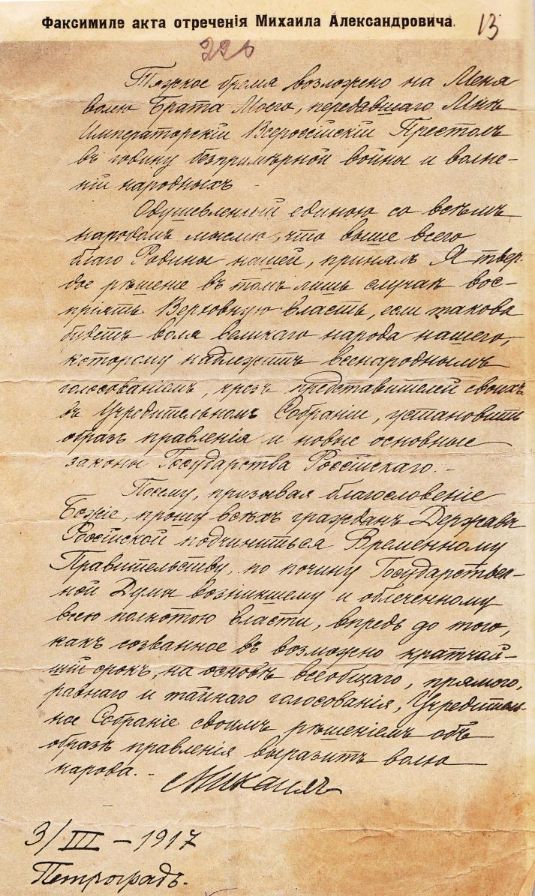 Факсимиле акта отреченія Михаила Александровича.
13
226
Тяжкое бремя возложено на Меня
волею Брата Моего, передавшаго Мнѣ
Императорскій Всероссійскій Престолъ
въ годину безпримѣрной войны и волне-
ній народныхъ.
Одушевленный единою со всѣмъ
народомъ мыслію, что выше всего
благо Родины нашей, принялъ Я твер-
дое рѣшеніе въ томъ лишь случаѣ вос-
пріять Верховную власть, если такова
будетъ воля великаго народа нашего,
которому надлежитъ всенароднымъ
голосованіемъ, чрезъ представителей своихъ
въ Учредительномъ Собраніи, установить
образъ правленія и новые основные
законы Государства Россійскаго.-
Посему, призывая благословеніе
Божіе, прошу всѣхъ гражданъ Державы
Россійской подчиниться Временному
Правительству, по почину Государствен-
ной Думы возникшему и облеченному
всею полнотою власти, впредь до того,
какъ созванное въ возможно кратчай-
шій срокъ, на основѣ всеобщаго, прямого,
равнаго и тайнаго голосованія, Учредитель-
ное Собраніе своимъ рѣшеніемъ объ
образѣ правленія выразитъ волю
народа.-
Михаилъ
3/III - 1917
Петроградъ.